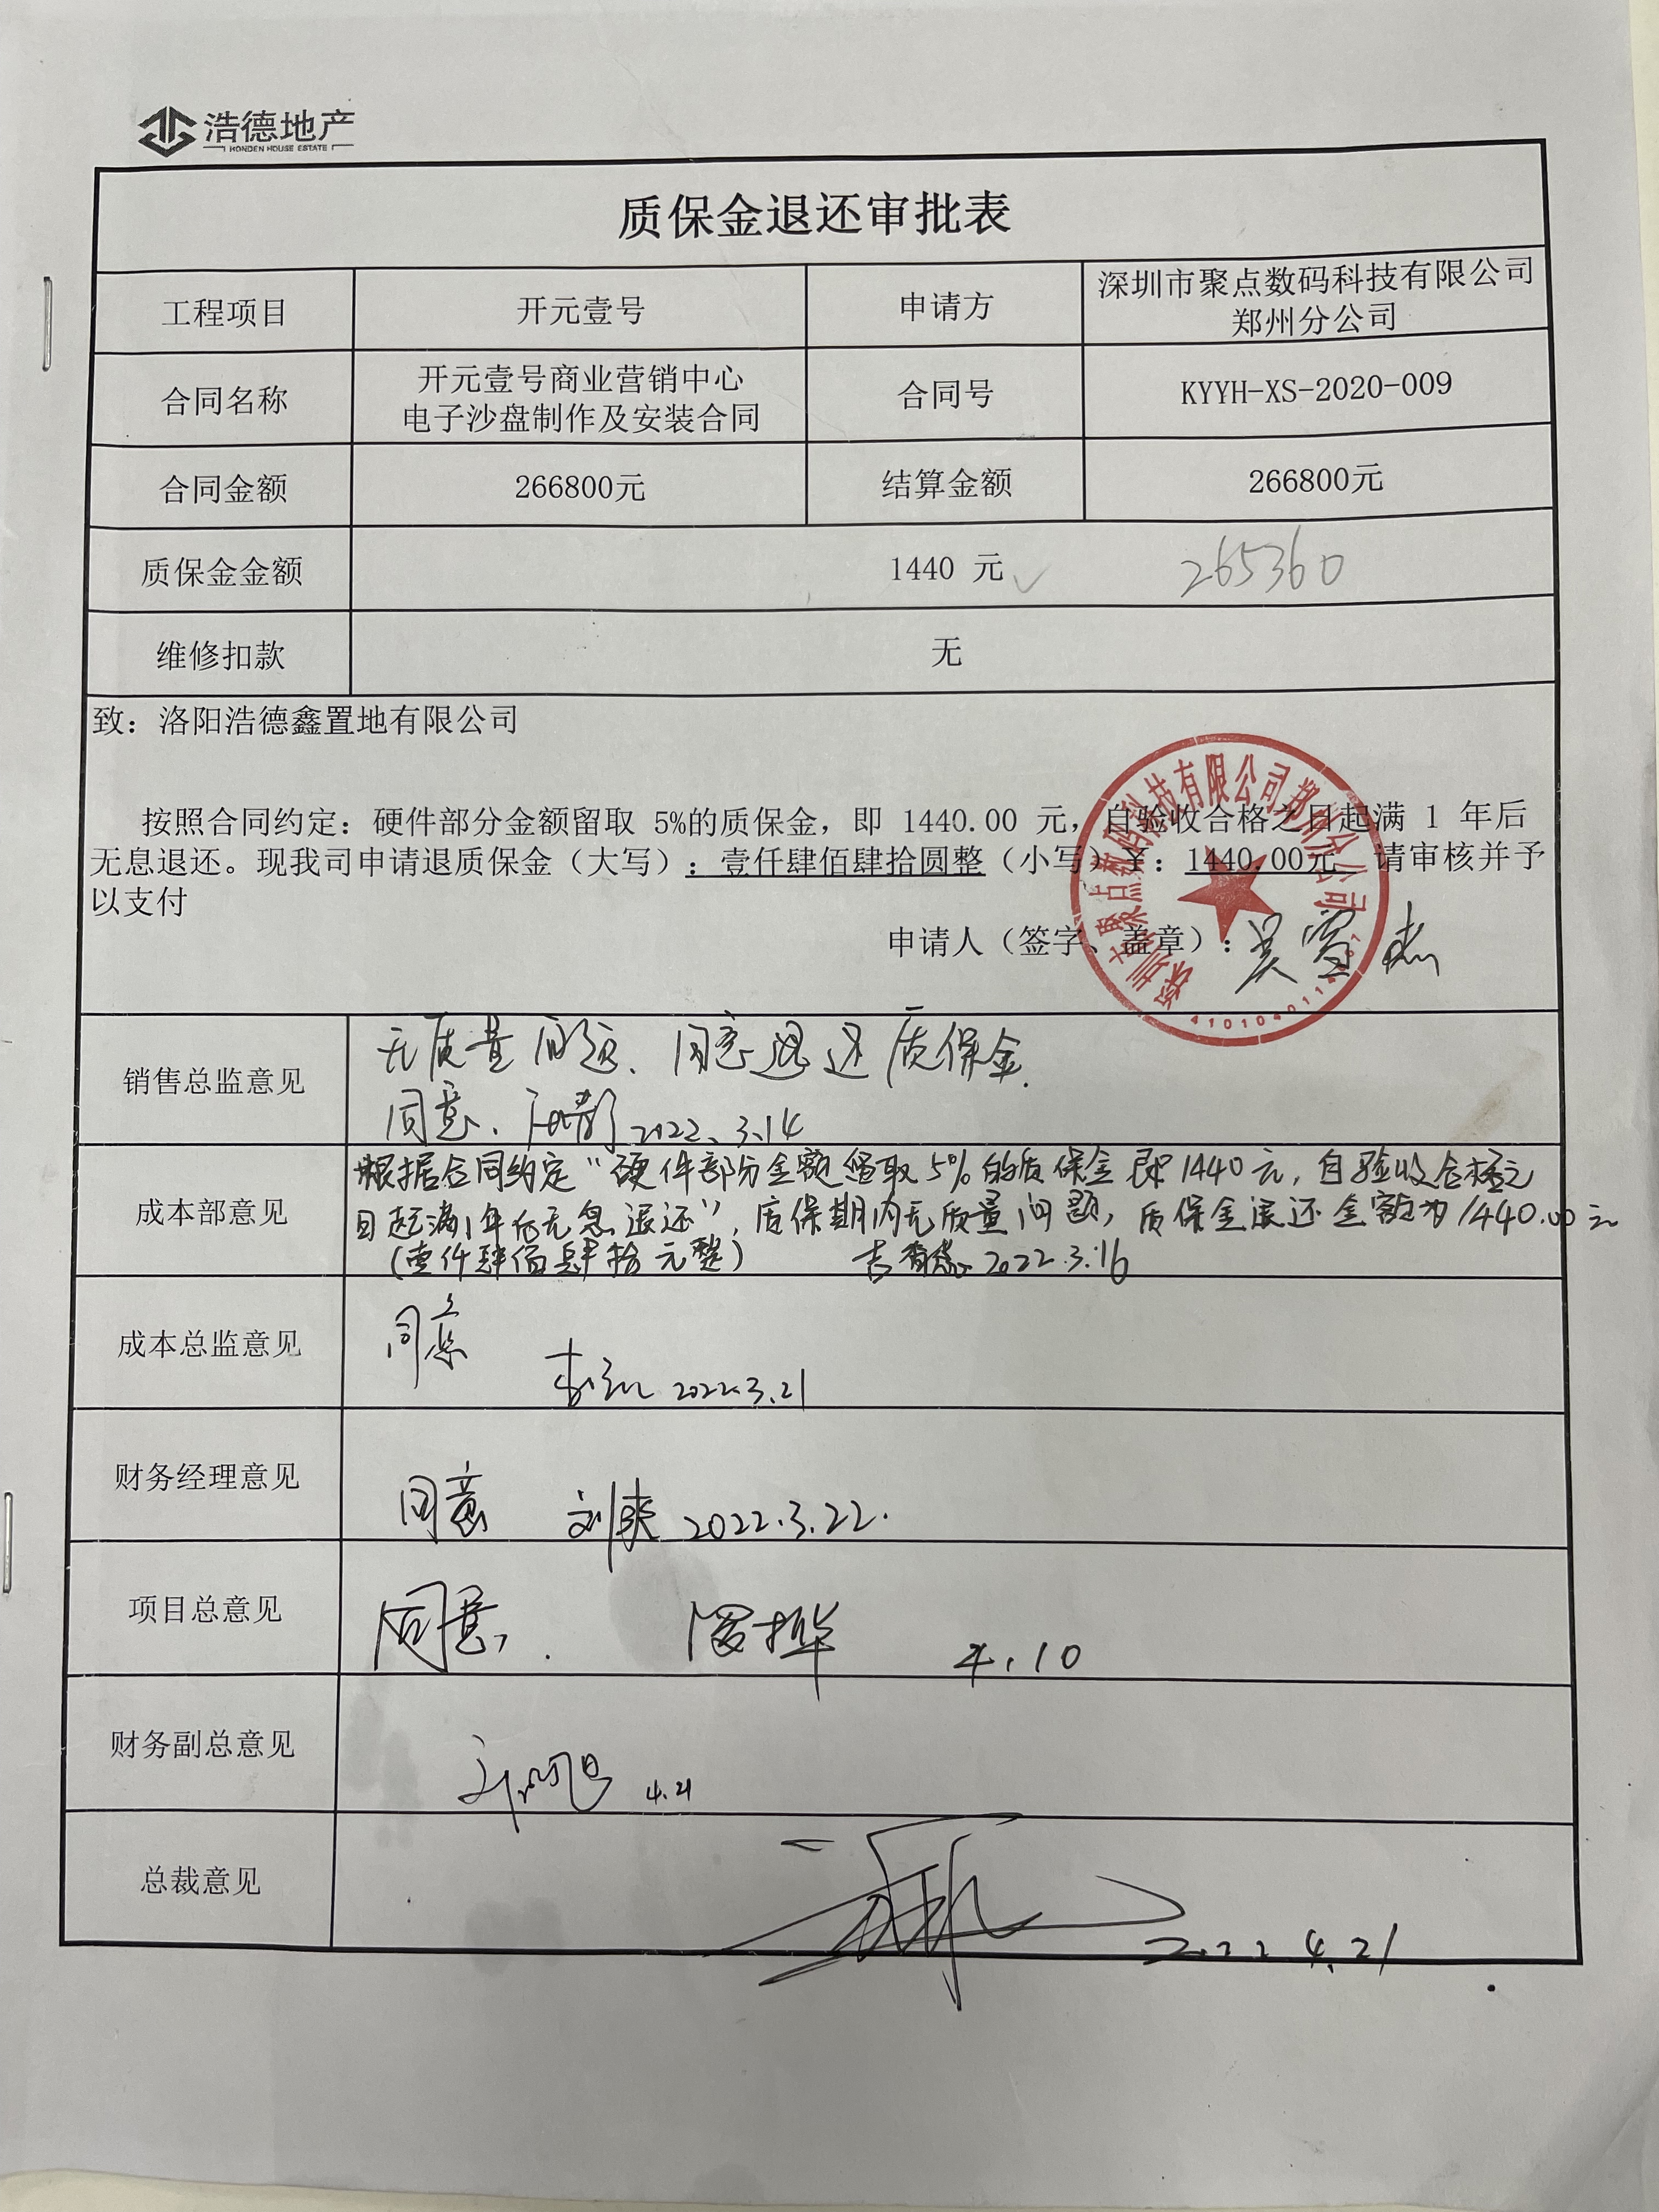 浩德地产
HONDEN HOUSE ESTATE
质保金退还审批表
工程项目
开元壹号
申请方
深圳市聚点数码科技有限公司
郑州分公司
合同名称
开元壹号商业营销中心
电子沙盘制作及安装合同
合同号
KYYH-XS-2020-009
合同金额
266800元
结算金额
266800元
质保金金额
1440 元
265360
维修扣款
无
致：洛阳浩德鑫置地有限公司
按照合同约定：硬件部分金额留取 5%的质保金，即 1440.00 元，自验收合格之日起满 1 年后
无息退还。现我司申请退质保金（大写）：壹仟肆佰肆拾圆整（小写）¥：1440.00元 请审核并予
以支付
申请人（签字、盖章）：
深圳市聚点数码科技有限公司郑州分公司
销售总监意见
无质量问题、同意退还质保金.
同意、 2022.3.14
成本部意见
根据合同约定“硬件部分金额留取5%的质保金即1440元，自验收合格之
日起满1年后无息退还”，质保期内无质量问题，质保金退还金额为1440.00元
（壹仟肆佰肆拾元整） 2022.3.16
成本总监意见
同意
2022.3.21
财务经理意见
同意 刘爽 2022.3.22.
项目总意见
同意, 4.10
财务副总意见
4.21
总裁意见
2022 4.21